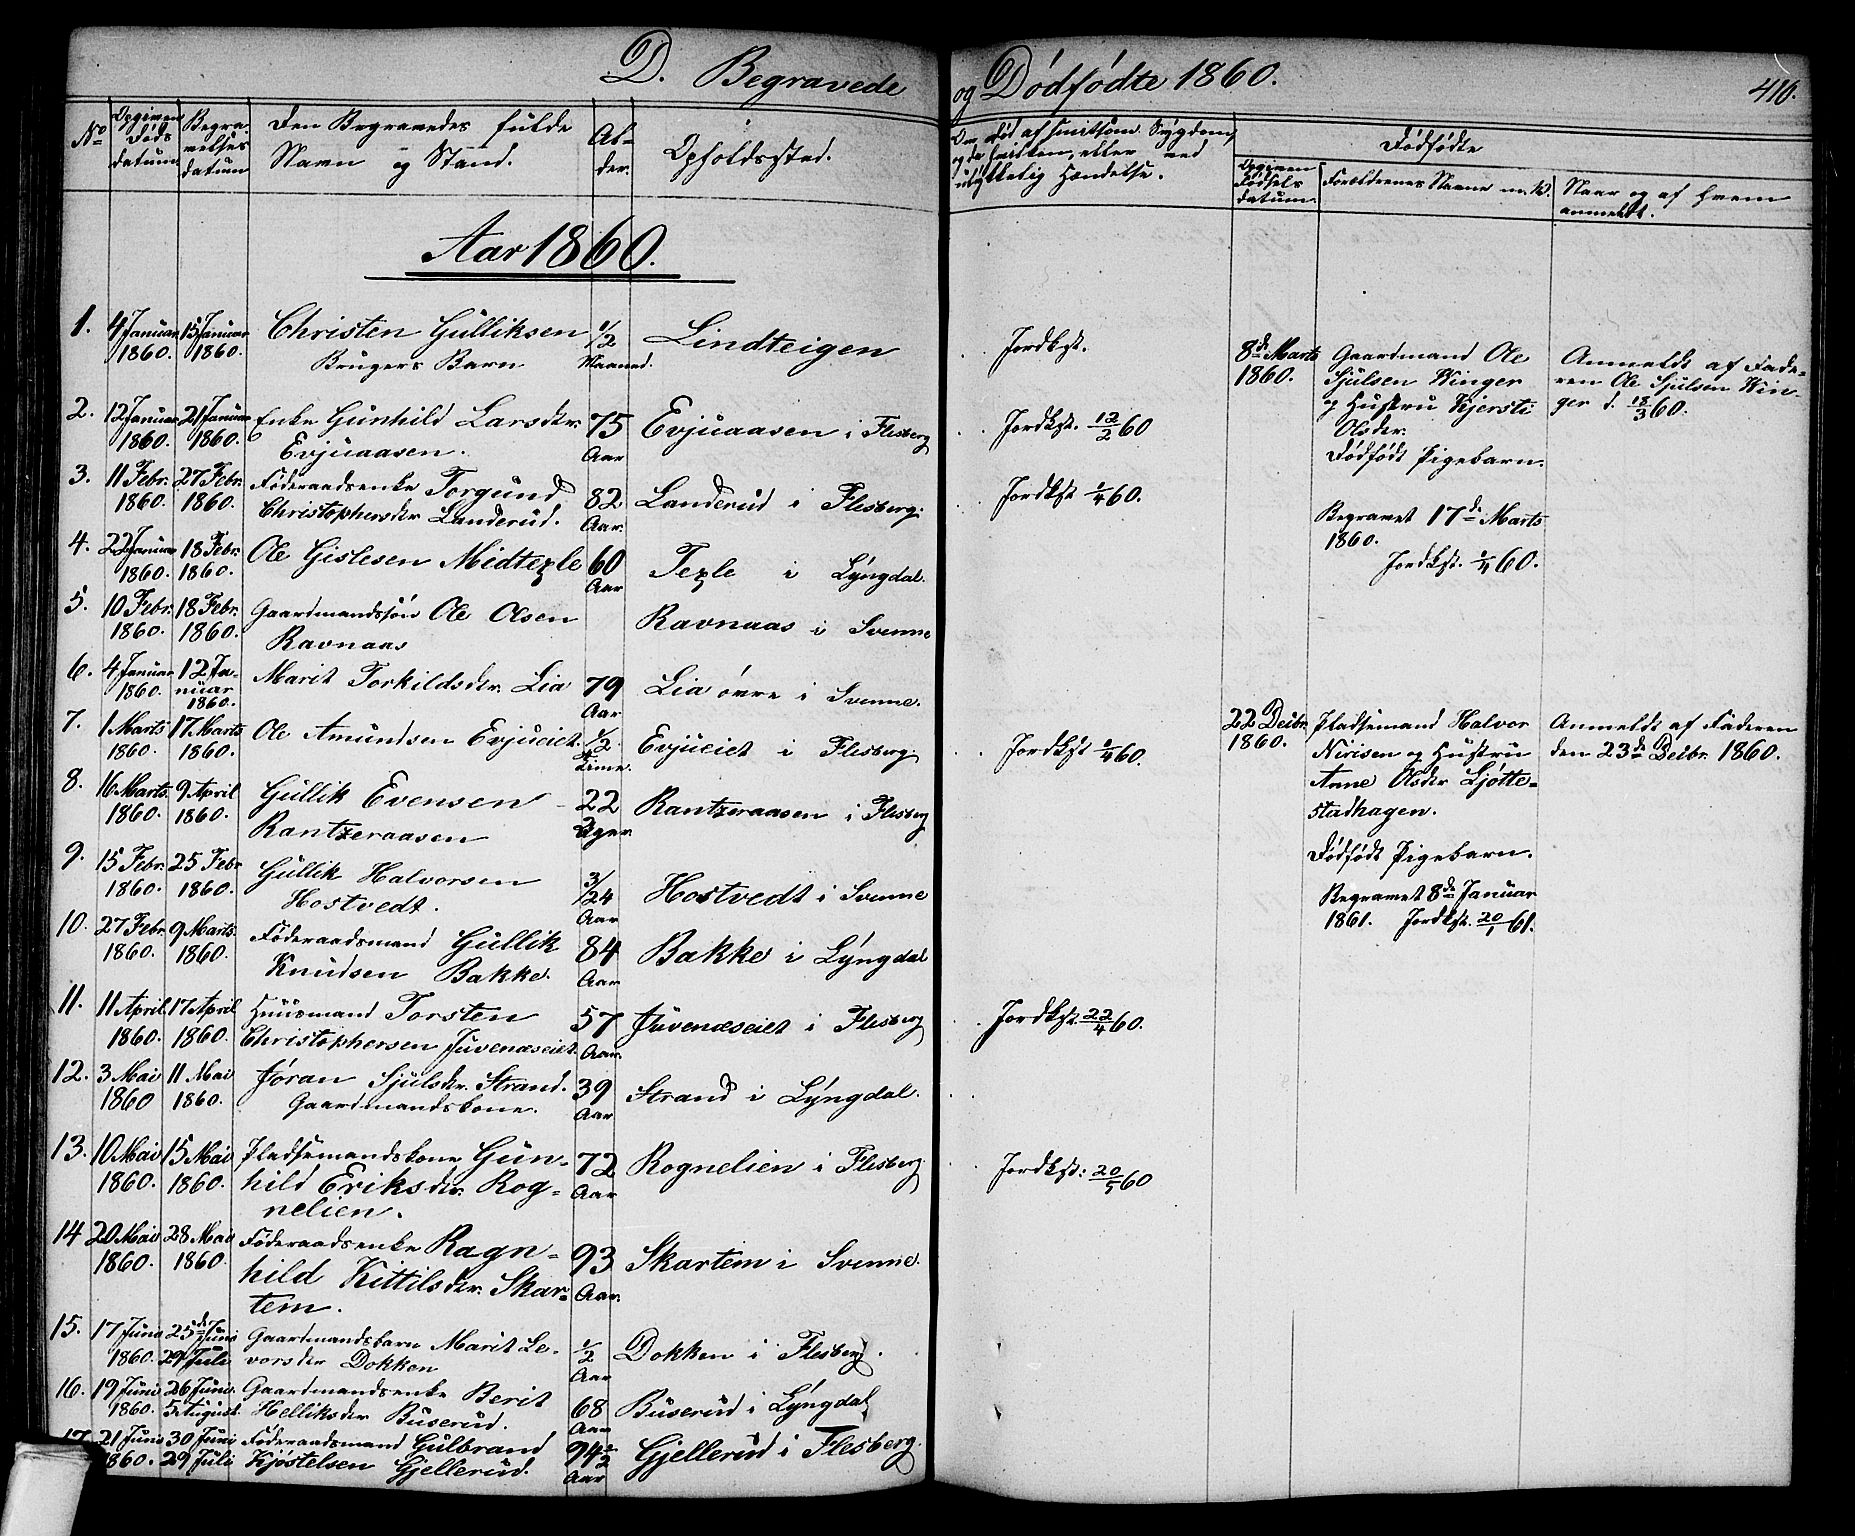 D. Begravede og Dødfødte 1860.
416.
No
Opgiven Døds datum
Begravelses datum
Den Begravedes fulde Navn og Stand.
Alder.
Opholdssted.
Om død af smitsom Sygdom,
ulykkelig Hændelse.
Dødfødte
Opgiven Fødsels datum.
Forældrenes Navne m. v.
Naar og af hvem anmeldt.
Aar 1860.
1. 4 Januar 1860. 15 Januar 1860. Christen Gulliksen 1/2 Maaned. Lindteigen Jordkst.
Brugers Barn
2. 12 Januar 1860. 21 Januar 1860. Enke Gunhild Larsdtr. 75 Aar Evjuaasen i Flesberg Jordkst. 12/2 60
Evjuaasen.
3. 11 Febr. 1860. 27 Febr. 1860. Føderaadsenke Torgund 82 Aar. Landerud i Flesberg. Jordkst. /4 60.
Christophersdtr Landerud.
4. 22 Januar 1860. 18 Febr. 1860. Ole Gislesen Midtezle 60 Aar Tezle i Lyngdal.
5. 10 Febr. 1860. 18 Febr. 1860. Gaardmandssøn Ole Olsen Ravnaas i Svenne
Ravnaas
6. 4 Januar 1860. 12 Januar 1860. Marit Torkildsdtr. Lia 79 Aar Lia øvre i Svenne.
7. 1 Marts 1860. 17 Marts 1860. Ole Amundsen Evjueiet. 1/2 Time. Evjueiet i Flesberg. Jordkst /4 60.
8. 16 Marts 1860. 9 April 1860. Gullik Evensen 22 Uger Rantzeraasen i Flesberg
Rantzeraasen
9. 15 Febr. 1860. 25 Febr 1860. Gullik Halvorsen 3/24 Aar Hostvedt i Svenne
Hostvedt.
10. 27 Febr. 1860. 9 Marts. 1860. Føderaadsmand Gullik 84 Aar Bakke i Lyngdal
Knudsen Bakke.
11. 11 April 1860. 17 April 1860. Huusmand Torsten 57 Aar. Juvenæseiet i Flesberg Jordkst. 22/4 60.
Christophersen Juvenæseiet.
12. 3 Mai 1860 11 Mai 1860. Jøran Sjulsdtr. Strand. 39 Aar Strand i Lyngdal.
Gaardmandskone.
13. 10 Mai 1860. 15 Mai 1860. Pladsemandskone Gun- 72 Aar Rognelien i Flesberg. Jordkst: 20/5 60
hild Eriksdtr. Rog-
nelien.
14 20 Mai 1860. 28 Mai 1860. Føderaadsenke Ragn- 93 Aar. Skartem i Svenne.
hild Kittilsdtr. Skar-
tem.
15. 17 Juni 1860. 25de Juni 29 Juli Gaardmandsbarn Marit Le- 1/2 Aar Dokken i Flesberg.
vorsdtr Dokken
16. 19 Juni 1860. 26 Juni. 5 August. Gaardmandsenke Berit 68 Aar Buserud i Lyngdal
Helliksdtr Buserud.
17. 21 Juni 1860. 30 Juni 29 Juli Føderaadsmand Gulbrand 94 1/2 Aar Gjellerud i Flesberg.
Kjøstelsen Gjellerud.
8de Marts 1860.
Gaardmand Ole
Sjulsen Winger
og Hustru Kjersti
Olsdtr.
Dødfødt Pigebarn.
Begravet 17de Marts
1860.
Jordkst. /4 60.
Anmeldt af Fade-
ren Ole Sjulsen Win-
ger d. 18/3 60.
22 Decbr. 1860.
Pladsemand Halvor
Nirisen og Hustru
Anne Olsdtr Ljøtte-
stadhagen.
Dødfødt Pigebarn.
Begravet 8de Januar
1861. Jordkst. 20/1 61.
Anmeldt af Faderen
den 23de Decbr. 1860.